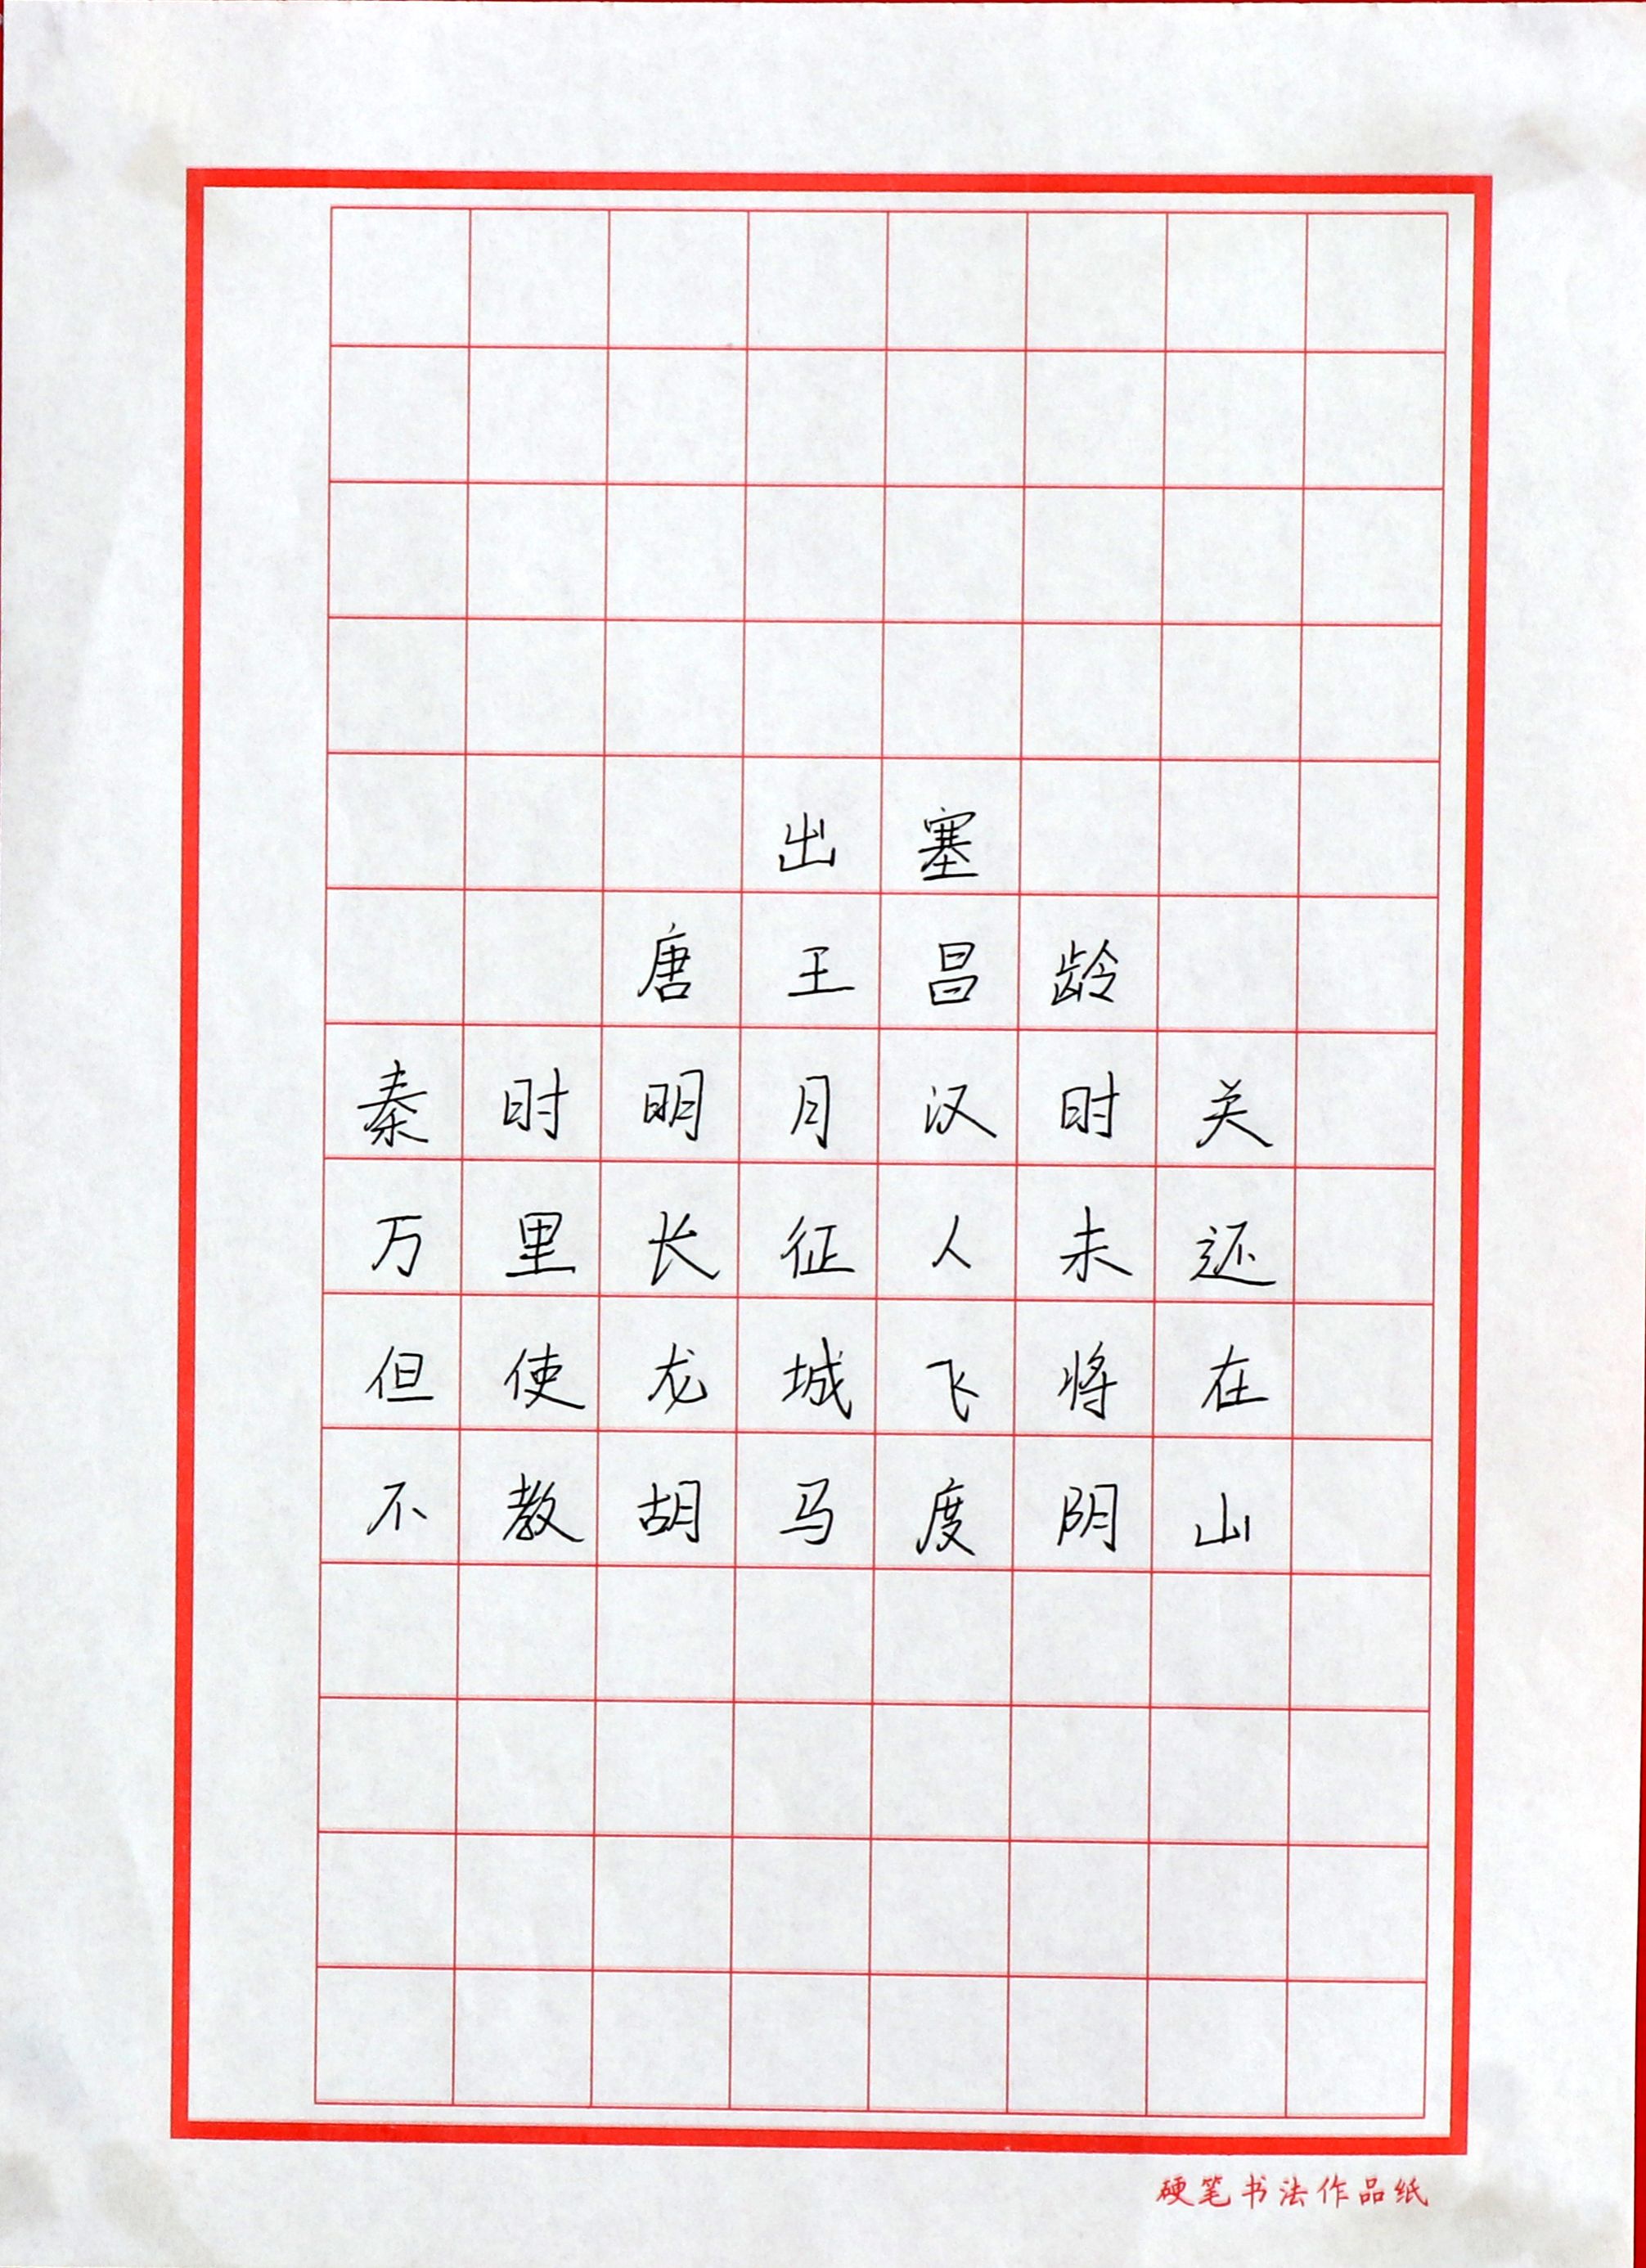 出塞
唐王昌龄
秦时明月汉时关
万里长征人未还
但使龙城飞将在
不教胡马度阴山
硬笔书法作品纸